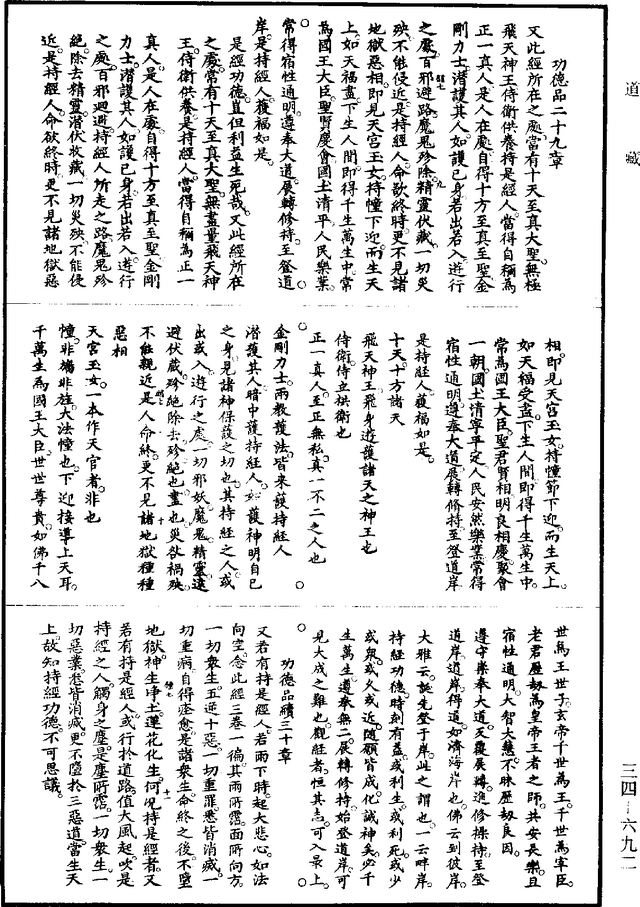 道藏
功德品二十九章
又此經所在之處當有十天至真大聖無極
飛天神王侍衛供養持是經人當得自稱為
正一真人是人在處自得十方至真至聖金
剛力士潛護其人如護己身若出若入遊行
之處百邪避路魔鬼殄除精靈伏藏一切災
殃不能侵近是持經人命欲終時更不見諸
地獄惡相即見天宮玉女持幢下迎而生天
上如天福盡下生人間即得千生萬生中常
為國王大臣聖賢慶會國土清平人民樂業
常得宿性通明遵奉大道展轉修持至登道
岸是持經人獲福如是
是經功德豈但利益生死哉又此經所在
之處常有十天至真大聖無盡量飛天神
王侍衛供養是持經人當得自稱為正一
真人是人在處自得十方至真至聖金剛
力士潛護其人如護己身若出若入遊行
之處百邪迴避持經人所走之路魔鬼殄
絕除去精靈潛伏收藏一切災殃不能侵
近是持經人命欲終時更不見諸地獄惡
相即見天宮玉女持幢節下迎而生天上
如天福受盡下生人間即得千生萬生中
常為國王大臣聖君賢相明良相慶聚會
一朝國土清寧平定人民安然樂業常得
宿性通明遵奉大道展轉修持至登道岸
是持經人獲福如是
十天十方諸天
飛天神王飛身遊護諸天之神王也
侍衛侍立拱衛也
正一真人至正無私真一不二之人也
金剛力士兩教護法皆來護持經人
潛護其人暗中護持經人如護神明自己
之身見諸神保護之切也其持經之人或
出或入遊行之處一切邪妖魔鬼精靈遠
避伏藏殄絕除去殄絕也盡也災欲禍殃
不能親近是人命終更不見諸地獄種種
惡相
天宮玉女一本作天官者非也
幢非旛非旌大法幢也下迎接導上天耳
千萬生為國王大臣世世尊貴如佛千八
世為王世子玄帝千世為王千世為宰臣
老君歷劫為皇帝王者之師共安長樂且
宿性通明大智大慧不昧歷劫良因
遵守崇奉大道反覆展轉進修操持至登
道岸道岸得道如濟海岸也佛云到彼岸
大雅云誕先登于岸此之謂也一云畔岸
持經功德時刻有益或利生或利死或少
或眾或久或近隨願皆成化誠神矣必千
生萬生遵奉無二展轉修持始登道岸可
見大成之難也觀經者恒其志可入最上
功德品續三十章
又若有持是經人若雨下時起大悲心如法
向空念此經三卷一徧其雨所霑面所向方
一切眾生五逆十惡一切重罪悉皆消滅一
切重病自得痊愈是諸眾生命終之後不墮
地獄神生淨土蓮花化生何況持是經者又
若有持是經人或行於道路值大風起吹是
持經之人觸身之塵是塵所霑一切眾生一
切惡業悉皆消滅更不墮於三惡道當生天
上故知持經功德不可思議
三四—六九二